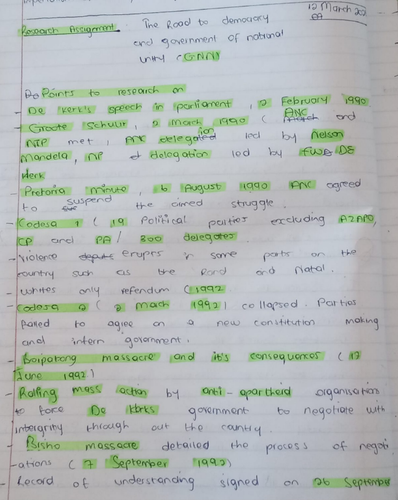 12 March 202
Research Assignment. The Road to democracy
and government of national
unity (GNU)
Points to research on
- De Klerk's speech in parliament, 2 February 1990
- Groote Schuur, 2 March 1990 ( ANC and
NP met, ANC delegation led by Nelson
Mandela, NP delegation led by FW DE
Klerk
- Pretoria minute, 6 August 1990 ANC agreed
to suspend the armed struggle.
- Codesa 1 ( 19 Political parties excluding AZAPO,
CP and PA / 300 delegates
- Violence erupes in some parts on the
country such as the Rand and Natal.
- Whites only refendum (1992
- Codesa 2 ( 2 March 1992) collapsed. Parties
Failed to agree on a new constitution making
and intern government.
- Boipatong massacre and it's consequences ( 17
June 1992)
- Rolling mass action by anti-apartheid organisation
to force De klerks government to negotiate with
intergrity through out the country.
- Bisho massacre detailed the process of negoti
-ations ( 7 September 1992)
- Record of understanding signed on 26 September